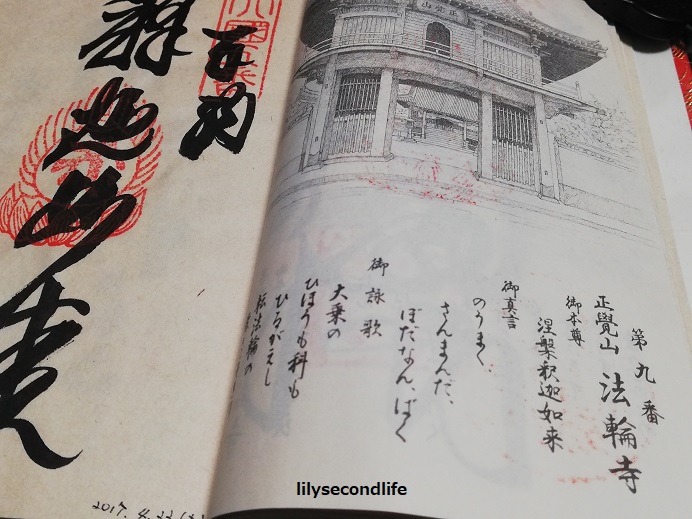 第九番
正覺山 法輪寺
御本尊
涅槃釈迦如来
御真言
のうまく、
さんまんだ、
ぼだなん、ばく
御詠歌
大乗の
ひほうも科も
ひるがえし
転法輪の
正覺山
奉納
釋迦如来
2017. 4. 22
lilysecondlife